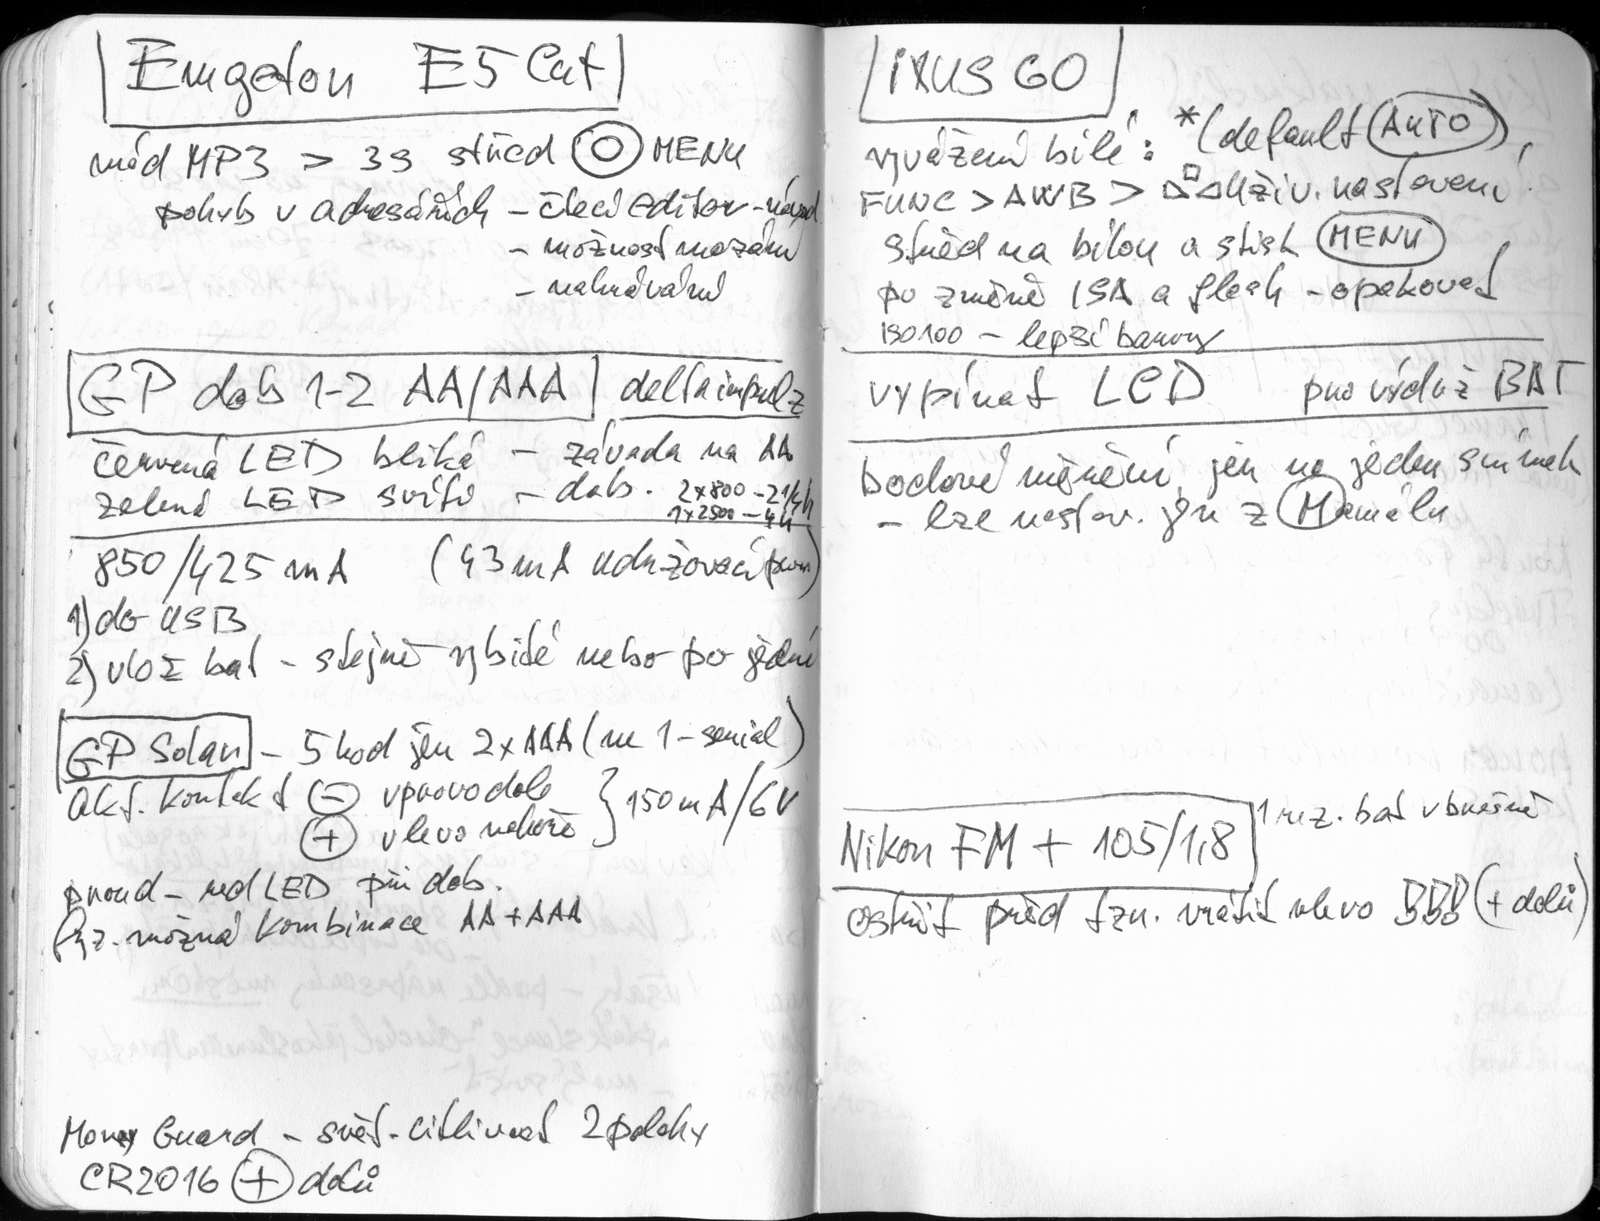 Emgeton E5 Cat
mód MP3 > 3s střed O MENU
pohyb v adresářích - čtecí editor - návod
- možnost mazání
- nahrávání
GP dob 1-2 AA/AAA delta impulz
červená LED bliká - závada na AA
zelená LED svítí - dob. 2x800 - 2 1/4h
1x2500 - 4h
850/425 mA (43 mA udržovací proud)
1) do USB
2) vlož bat - stejně vybité nebo po jedné
GP Solar - 5 hod jen 2xAAA (ne 1 - serial)
akt. kontakt - vpravo dole
+ vlevo nahoře } 150 mA/6V
proud - red LED při dob.
tzn. možná kombinace AA+AAA
Money Guard - svět. citlivost 2 polohy
CR2016 + dolů
iXUS 60
vyvážení bílé: *(default AUTO)
FUNC > AWB > uživ. nastavení
střed na bílou a stisk MENU
po změně ISA a flesh - opakovat
ISO100 - lepší barvy
vypínat LCD pro výdrž BAT
bodové měření jen na jeden snímek
- lze nastav. jen z Manuálu
Nikon FM + 105/1,8 1 rez. bat v brašně
ostřit před tzn. vrátit vlevo (+ dolů)